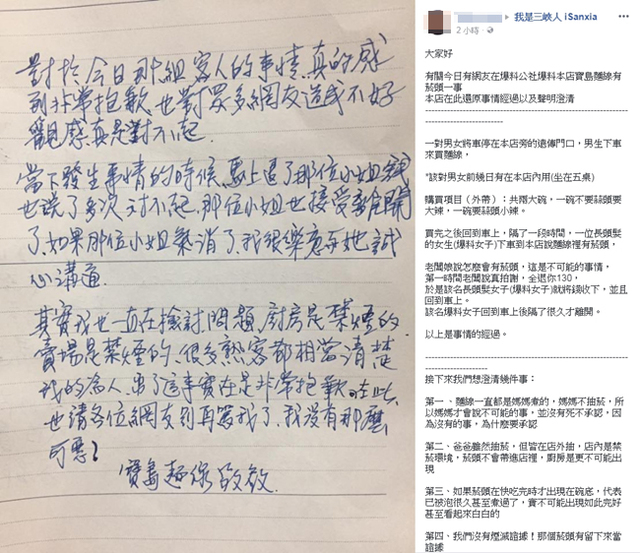 對於今日那組客人的事情,真的感
到非常抱歉,也對眾多網友造成不好
觀感真是對不起.
當下發生事情的時候,馬上退了那位小姐錢
也說了多次對不起,那位小姐也接受離開
了,如果那位小姐氣消了,我很樂意和她誠
心溝通
其實我也一直在檢討問題,廚房是禁煙的
賣場是禁煙的,很多熟客都相當清楚
我的為人,出了這事實在是非常抱歉,在此
也請各位網友別再罵我了,我沒有那麼
可惡!
寶島麵線 敬啟.
我是三峽人 iSanxia
2 小時
大家好
有關今日有網友在爆料公社爆料本店寶島麵線有
菸頭一事
本店在此還原事情經過以及聲明澄清
一對男女將車停在本店旁的遠傳門口，男生下車
來買麵線，
*該對男女前幾日有在本店內用(坐在五桌)
購買項目（外帶）：共兩大碗，一碗不要蒜頭要
大辣，一碗要蒜頭小辣。
買完之後回到車上，隔了一段時間，一位長頭髮
的女生(爆料女子)下車到本店說麵線裡有菸頭，
老闆娘說怎麼會有菸頭，這是不可能的事情，
第一時間老闆說真拍謝，全退你130，
於是該名長頭髮女子(爆料女子)就將錢收下，並且
回到車上。
該名爆料女子回到車上後隔了很久才離開。
以上是事情的經過。
接下來我們想澄清幾件事：
第一、麵線一直都是媽媽煮的，媽媽不抽菸，所
以媽媽才會說不可能的事，並沒有死不承認，因
為沒有的事，為什麼要承認
第二、爸爸雖然抽菸，但皆在店外抽，店內是禁
菸環境，菸頭不會帶進店裡，廚房是更不可能出
現
第三、如果菸頭在快吃完時才出現在碗底，代表
已被泡很久甚至煮過了，實不可能出現如此完好
甚至看起來白白的
第四、我們沒有煙滅證據！那個菸頭有留下來當
證據